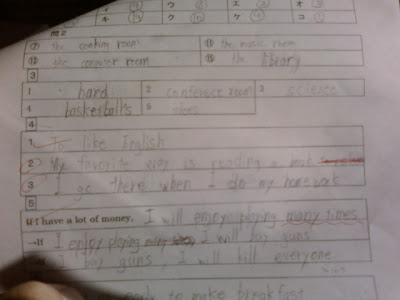 ア ⑦ ウ ② エ ② オ ③
キ ④ ク ⑩ ケ ④ コ ①
問2
⑦ the cooking room ⑪ the music room
⑫ the computer room ⑮ the library
3
1 hard 2 conference room 3 science
4 basketballs 5 shoes
4
1 To like English
2 My favorite way is reading a book
3 I go there when I do my homework
5
If I have a lot of money, I will enjoy playing many times
→If I enjoy playing, I will buy guns
I buy guns, I will kill everyone
ready to make breakfast